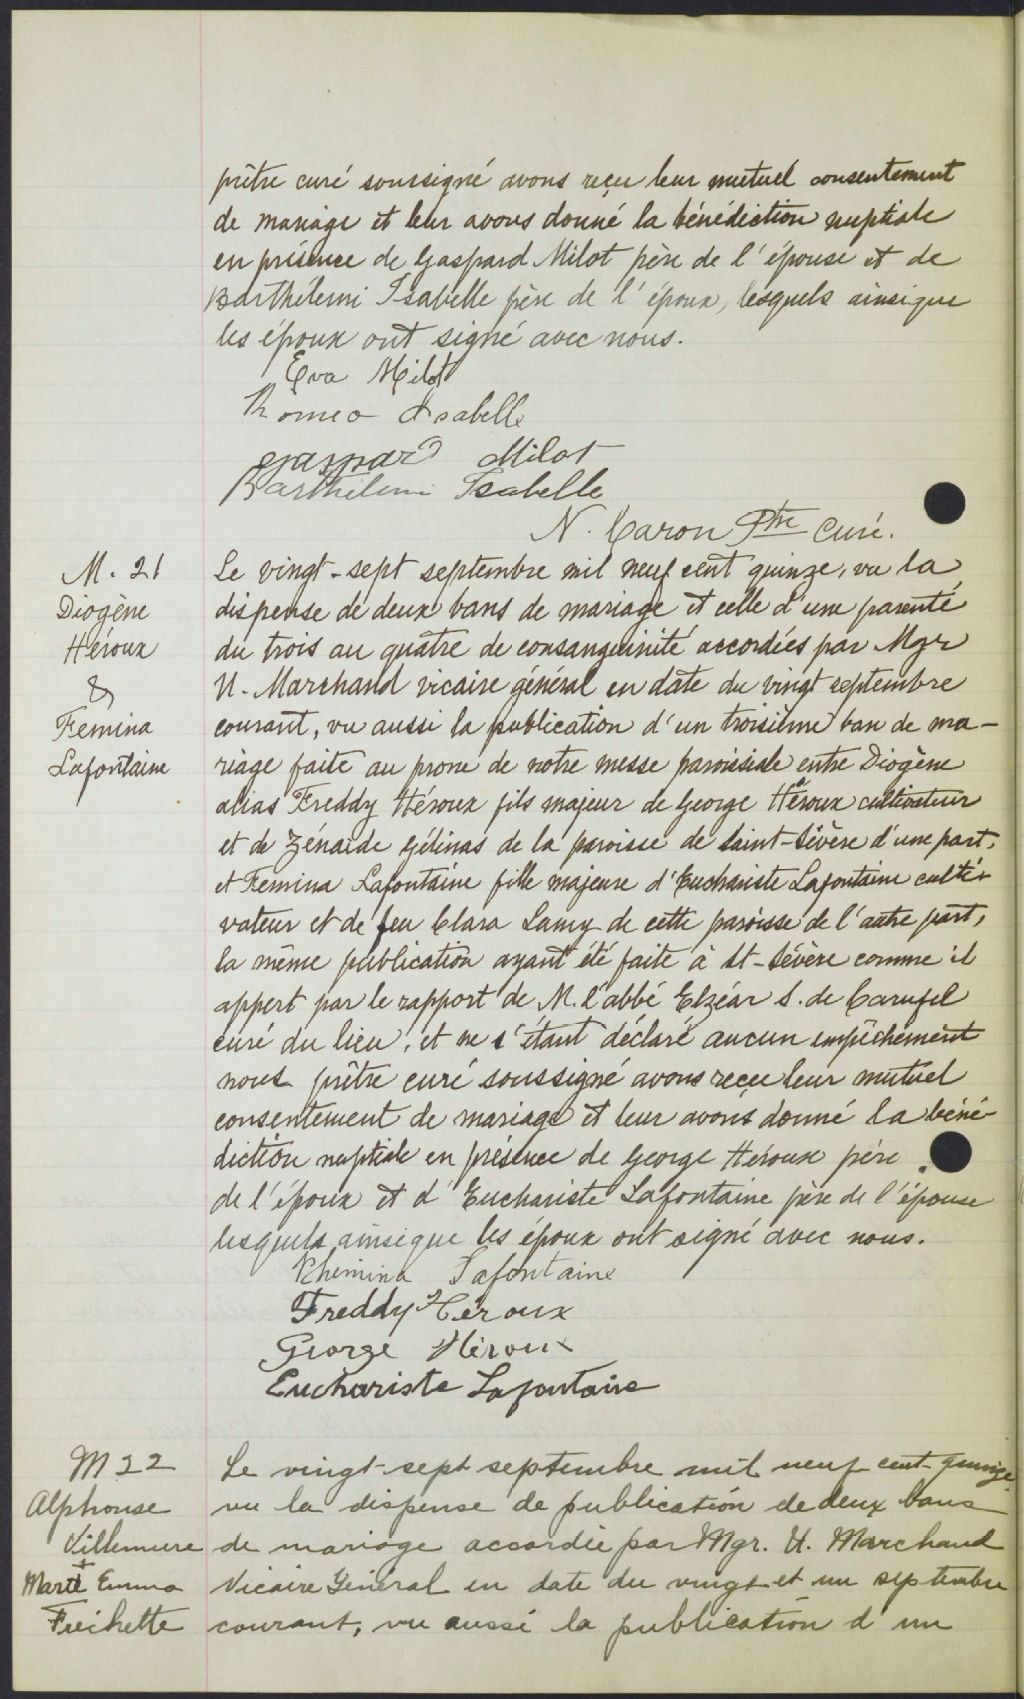 prêtre curé soussigné avons reçu leur mutuel consentement
de mariage et leur avons donné la bénédiction nuptiale
en présence de Gaspard Milot père de l'épouse et de
Barthélemi Isabelle père de l'époux, lesquels ainsi que
les époux ont signé avec nous.
Eva Milot
Romeo Isabelle
Gaspard Milot
Barthelemi Isabelle
N. Caron Ptre Curé.
M. 21
Diogène
Héroux
&
Femina
Lafontaine
Le vingt-sept septembre mil neuf cent quinze, vu la
dispense de deux bans de mariage et celle d'une parenté
du trois au quatre de consanguinité accordées par Mgr
U. Marchand vicaire général en date du vingt septembre
courant, vu aussi la publication d'un troisième ban de ma-
riage faite au prone de notre messe paroissiale entre Diogène
alias Freddy Héroux fils majeur de George Héroux cultivateur
et de Zénaïde Gélinas de la paroisse de Saint-Sévère d'une part,
et Femina Lafontaine fille majeure d'Euchariste Lafontaine culti-
vateur et de feu Clara Lamy de cette paroisse de l'autre part,
la même publication ayant été faite à St-Sévère comme il
appert par le rapport de M. l'abbé Elzéar S. de Carufel
curé du lieu, et ne s'étant déclaré aucun empêchement
nous prêtre curé soussigné avons reçu leur mutuel
consentement de mariage et leur avons donné la béné-
diction nuptiale en présence de George Héroux père
de l'époux et d'Euchariste Lafontaine père de l'épouse
lesquels ainsi que les époux ont signé avec nous.
Phemina Lafontaine
Freddy Héroux
George Héroux
Euchariste Lafontaine
M 22
Alphonse
Villemure
+
Marie Emma
Frechette
Le vingt-sept septembre mil neuf cent quinze
vu la dispense de publication de deux bans
de mariage accordée par Mgr. U. Marchand
Vicaire Général en date du vingt et un septembre
courant, vu aussi la publication d'un